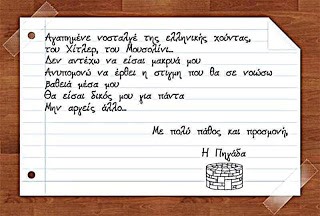 Αγαπημένε νοσταλγέ της ελληνικής χούντας,
του Χίτλερ, του Μουσολίνι...
Δεν αντέχω να είσαι μακρυά μου
Ανυπομονώ να έρθει η στιγμη που θα σε νοιώσω
βαθειά μέσα μου
Θα είσαι δικός μου για πάντα
Μην αργείς άλλο...
Με πολύ πάθος και προσμονή,
Η Πηγάδα